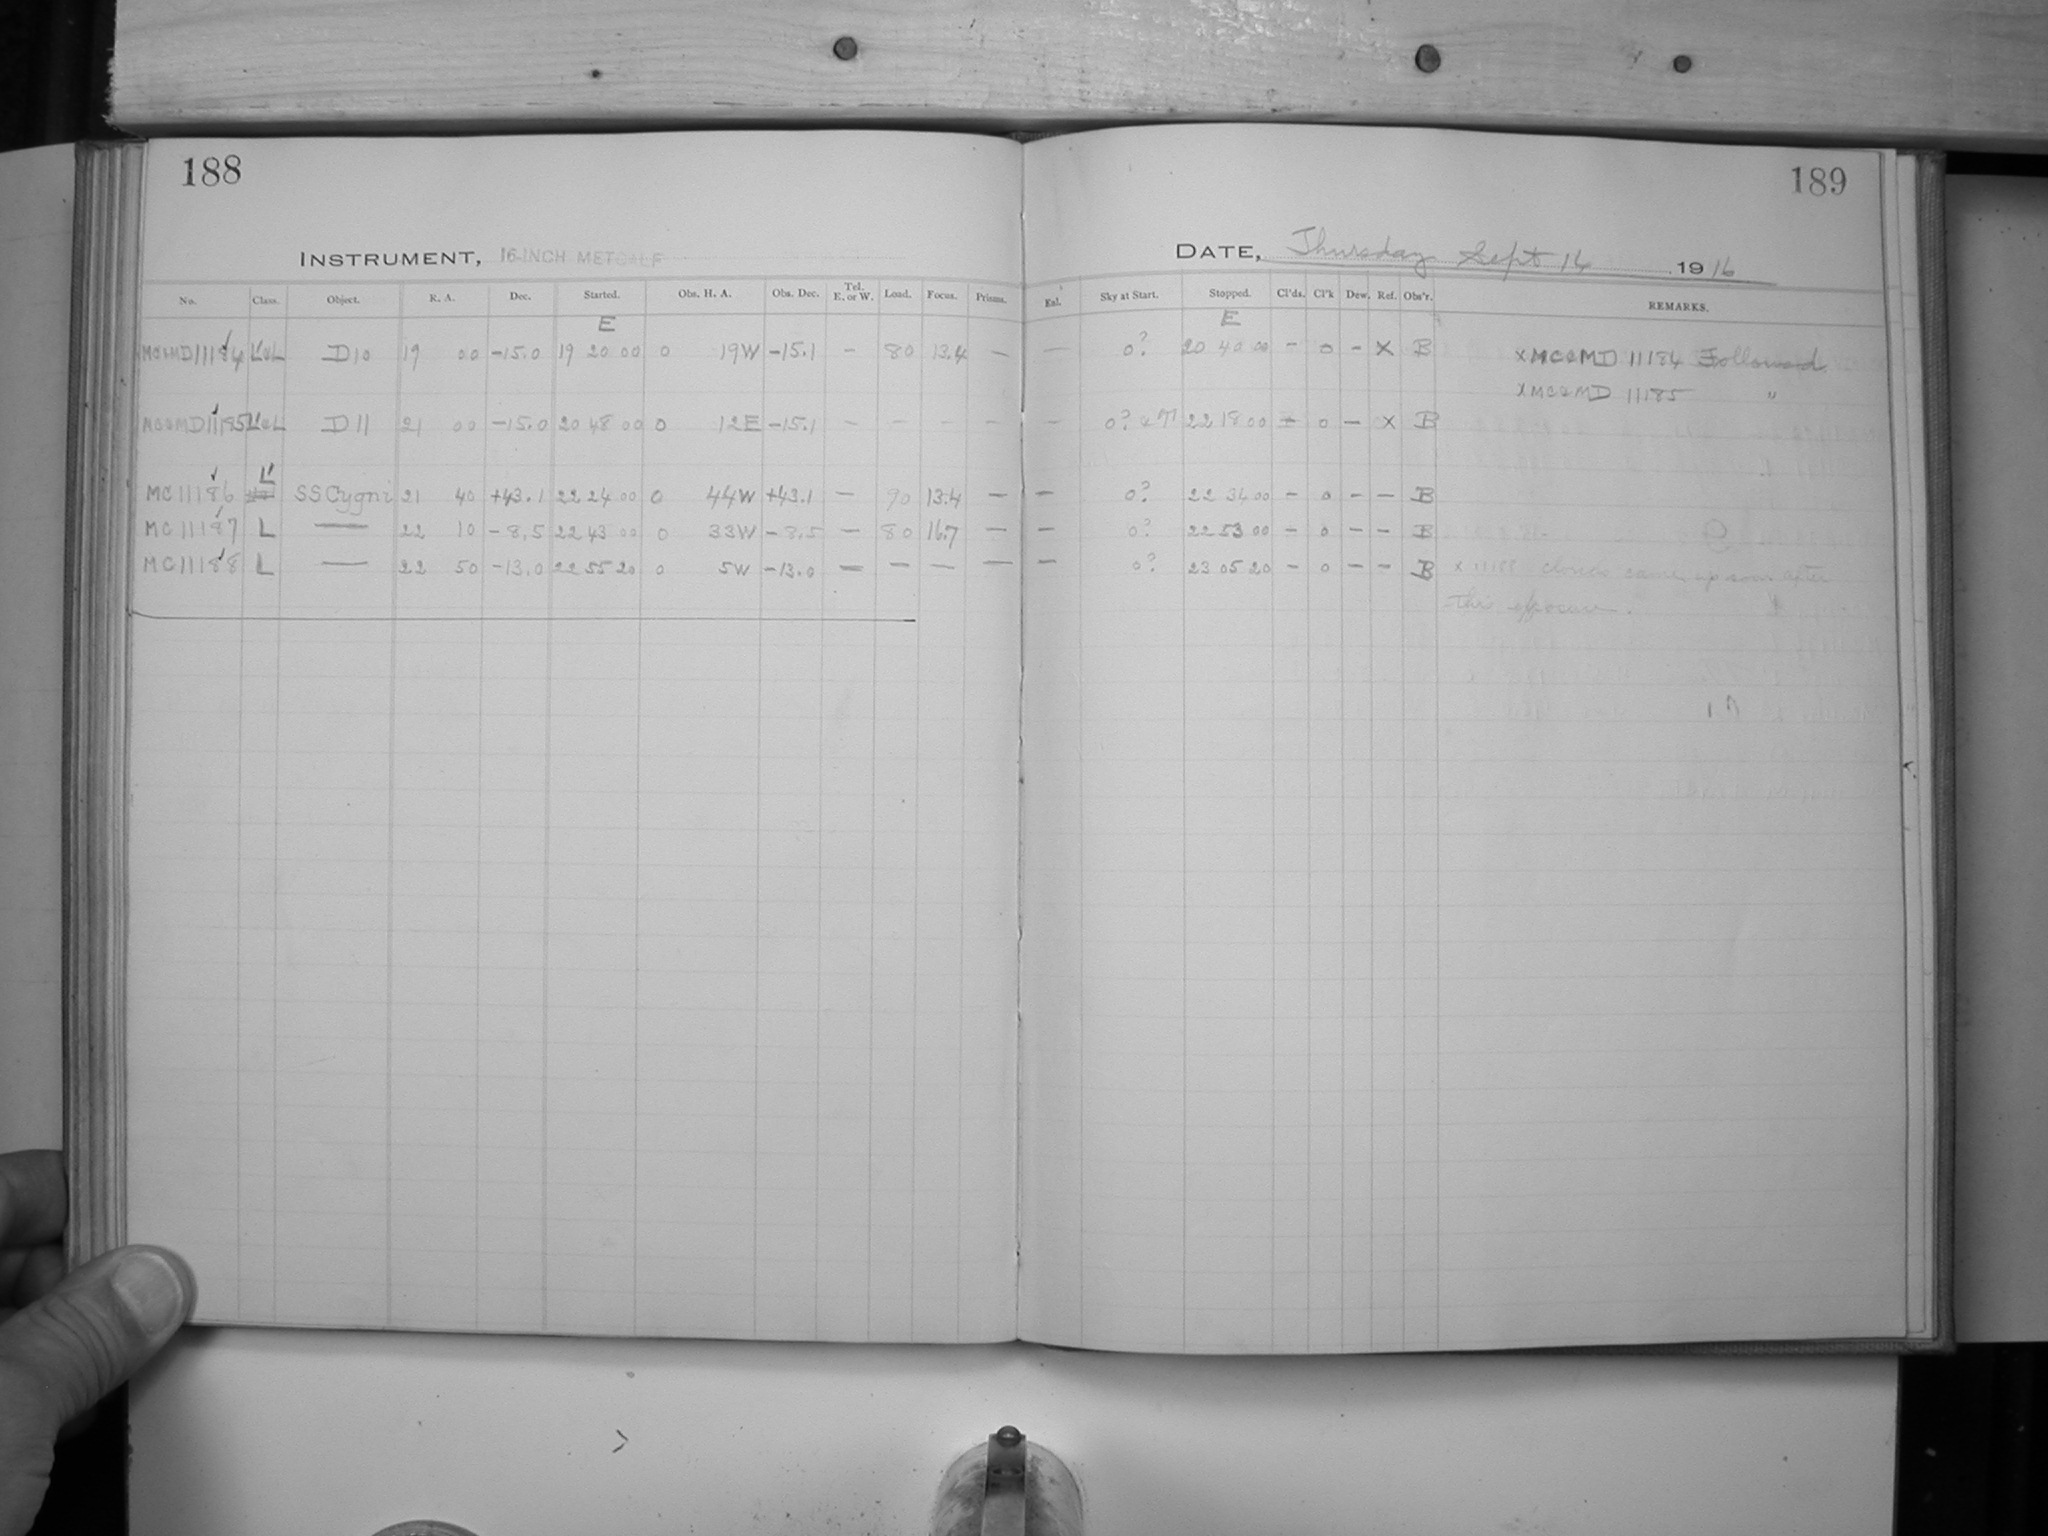 188
189
INSTRUMENT, 16-INCH METCALF
DATE, Thursday Sept 14 1916
No. Class. Object. R. A. Dec. Started. Obs. H. A. Obs. Dec. Tel. E. or W. Load. Focus. Prisms. Eal. Sky at Start. Stopped. Cl'ds. Cl'k Dew. Ref. Obs'r. REMARKS.
E E
MC&MD11184 L'&L D10 19 00 -15.0 19 20 00 0 19W -15.1 - 80 13.4 - - 0? 20 40 00 - 0 - X B X MC&MD 11184 Followed
X MC&MD 11185 "
MC&MD11185 L'&L D11 21 00 -15.0 20 48 00 0 12E -15.1 - - - - - 0? 22 18 00 0 - X B
L'
MC11186 SS Cygni 21 40 +43.1 22 24 00 0 44W +43.1 - 90 13.4 - - 0? 22 34 00 - 0 - - B
MC11187 L — 22 10 -8.5 22 43 00 0 33W -8.5 - 80 16.7 - - 0? 22 53 00 - 0 - - B
MC11188 L — 22 50 -13.0 22 55 20 0 5W -13.0 - - - - - 0? 23 05 20 - 0 - - B X 11188 clouds came up soon after
this exposure.